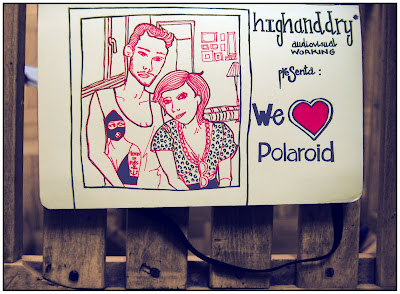 highanddry*
audiovisual
WORKING
presenta:
We ❤
Polaroid